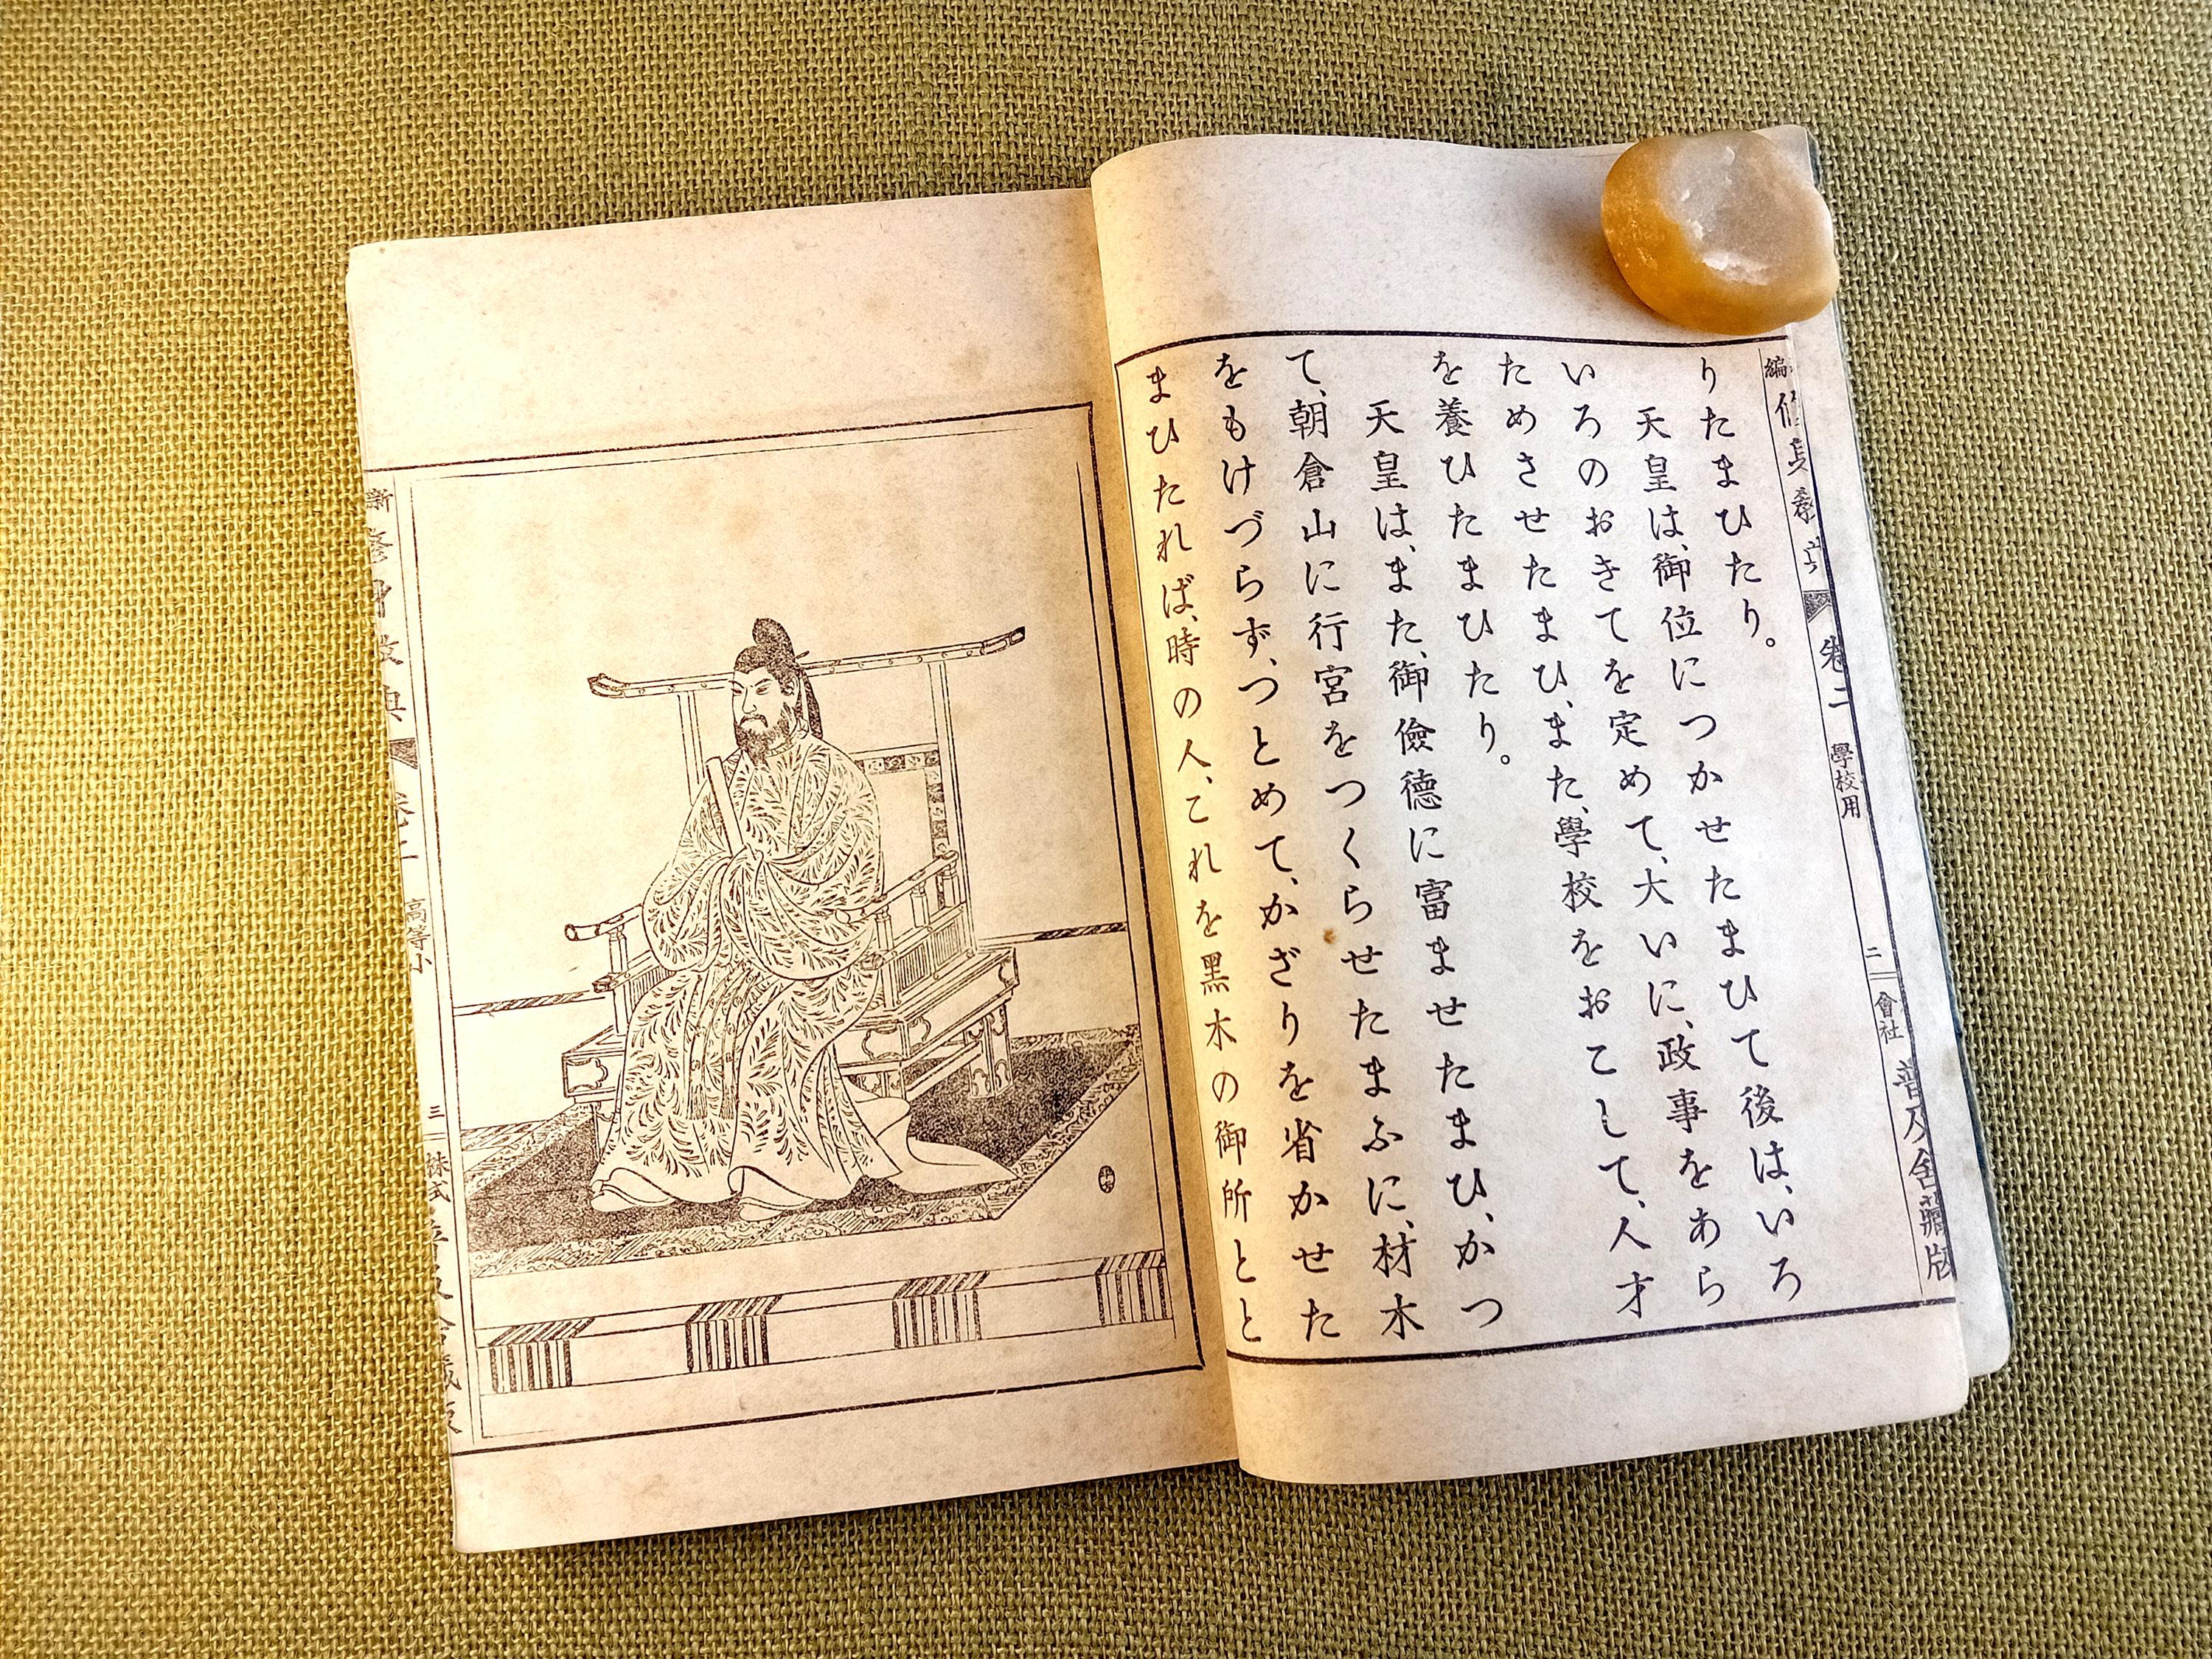 編 修身教典 卷二 學校用 二 會社 普及舍藏版
りたまひたり。
天皇は、御位につかせたまひて後は、いろ
いろのおきてを定めて、大いに、政事をあら
ためさせたまひ、また、學校をおこして、人才
を養ひたまひたり。
天皇は、また、御儉德に富ませたまひ、かつ
て、朝倉山に行宮をつくらせたまふに、材木
をもけづらず、つとめて、かざりを省かせた
まひたれば、時の人、これを黑木の御所とと
新 修身教典 卷二 高等小 三 株式